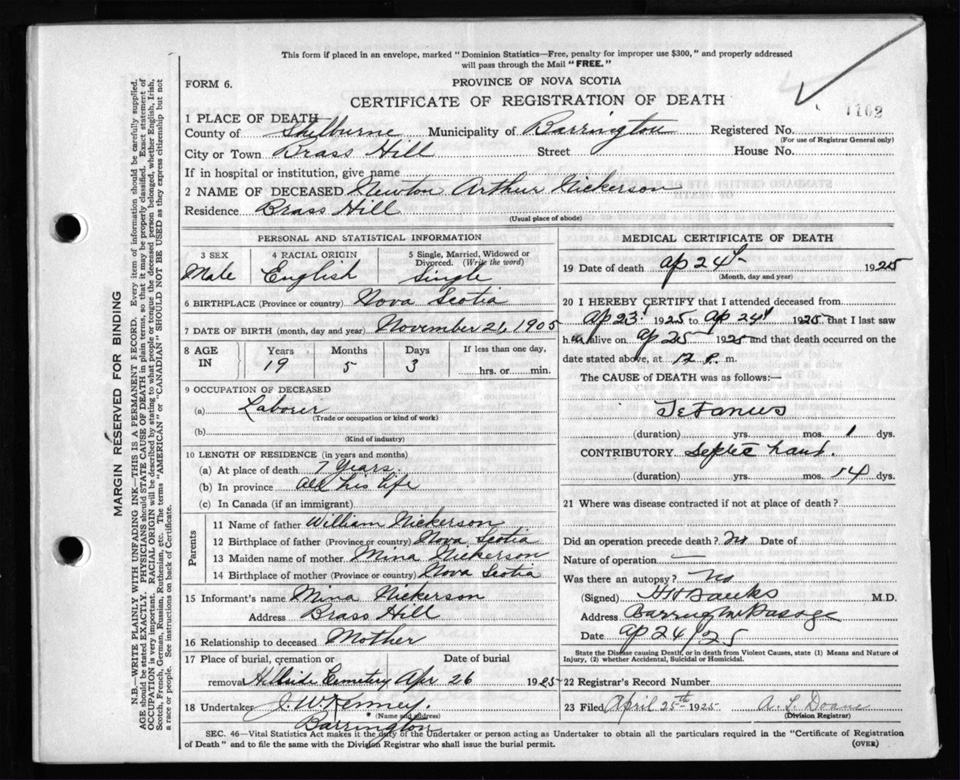 This form if placed in an envelope, marked "Dominion Statistics—Free, penalty for improper use $300," and properly addressed
will pass through the Mail "FREE."
FORM 6.
PROVINCE OF NOVA SCOTIA
CERTIFICATE OF REGISTRATION OF DEATH
1102
1 PLACE OF DEATH
County of Shelburne Municipality of Barrington Registered No.
(For use of Registrar General only)
City or Town Brass Hill Street House No.
If in hospital or institution, give name
2 NAME OF DECEASED Newton Arthur Nickerson
Residence Brass Hill
(Usual place of abode)
PERSONAL AND STATISTICAL INFORMATION
3 SEX 4 RACIAL ORIGIN 5 Single, Married, Widowed or
Divorced. (Write the word)
Male English Single
6 BIRTHPLACE (Province or country) Nova Scotia
7 DATE OF BIRTH (month, day and year) November 21, 1905
8 AGE IN Years Months Days If less than one day,
19 5 3 hrs. or min.
9 OCCUPATION OF DECEASED
(a) Laborer
(Trade or occupation or kind of work)
(b)
(Kind of industry)
10 LENGTH OF RESIDENCE (in years and months)
(a) At place of death 7 Years.
(b) In province All his life
(c) In Canada (if an immigrant)
Parents
11 Name of father William Nickerson
12 Birthplace of father (Province or country) Nova Scotia
13 Maiden name of mother Mina Nickerson
14 Birthplace of mother (Province or country) Nova Scotia
15 Informant's name Mina Nickerson
Address Brass Hill
16 Relationship to deceased Mother
17 Place of burial, cremation or Date of burial
removal Hillside Cemetry Apr 26 1925
18 Undertaker J. W. Kenney.
(Name and address)
Barrington
MEDICAL CERTIFICATE OF DEATH
19 Date of death Ap 24 1925
(Month, day and year)
20 I HEREBY CERTIFY that I attended deceased from
Ap 23 1925 to Ap 24 1925 that I last saw
him alive on Ap 25 1925 and that death occurred on the
date stated above, at 12 P. m.
The CAUSE of DEATH was as follows:—
Tetanus
(duration) yrs. mos. 1 dys.
CONTRIBUTORY Septic hand.
(duration) yrs. mos. 14 dys.
21 Where was disease contracted if not at place of death?
Did an operation precede death? No Date of
Nature of operation —
Was there an autopsy? No
(Signed) H H Banks M.D.
Address Barrington Passage
Date Ap 24/25
State the Disease causing Death, or in death from Violent Causes, state (1) Means and Nature of
Injury, (2) whether Accidental, Suicidal or Homicidal.
22 Registrar's Record Number
23 Filed April 25th 1925 A. L. Doane
(Division Registrar)
SEC. 46—Vital Statistics Act makes it the duty of the Undertaker or person acting as Undertaker to obtain all the particulars required in the "Certificate of Registration
of Death" and to file the same with the Division Registrar who shall issue the burial permit. (OVER)
MARGIN RESERVED FOR BINDING
N.B.—WRITE PLAINLY WITH UNFADING INK—THIS IS A PERMANENT RECORD. Every item of information should be carefully supplied.
AGE should be stated EXACTLY. PHYSICIANS should STATE CAUSE OF DEATH in plain terms, so that it may be properly classified. Exact statement of
OCCUPATION is very important. RACIAL ORIGIN will be described by stating to what people or tongue the deceased person belonged, whether English, Irish,
Scotch, French, German, Russian, Ruthenian, etc. The terms "AMERICAN" or "CANADIAN" SHOULD NOT BE USED as they express citizenship but not
a race or people. See instructions on back of Certificate.